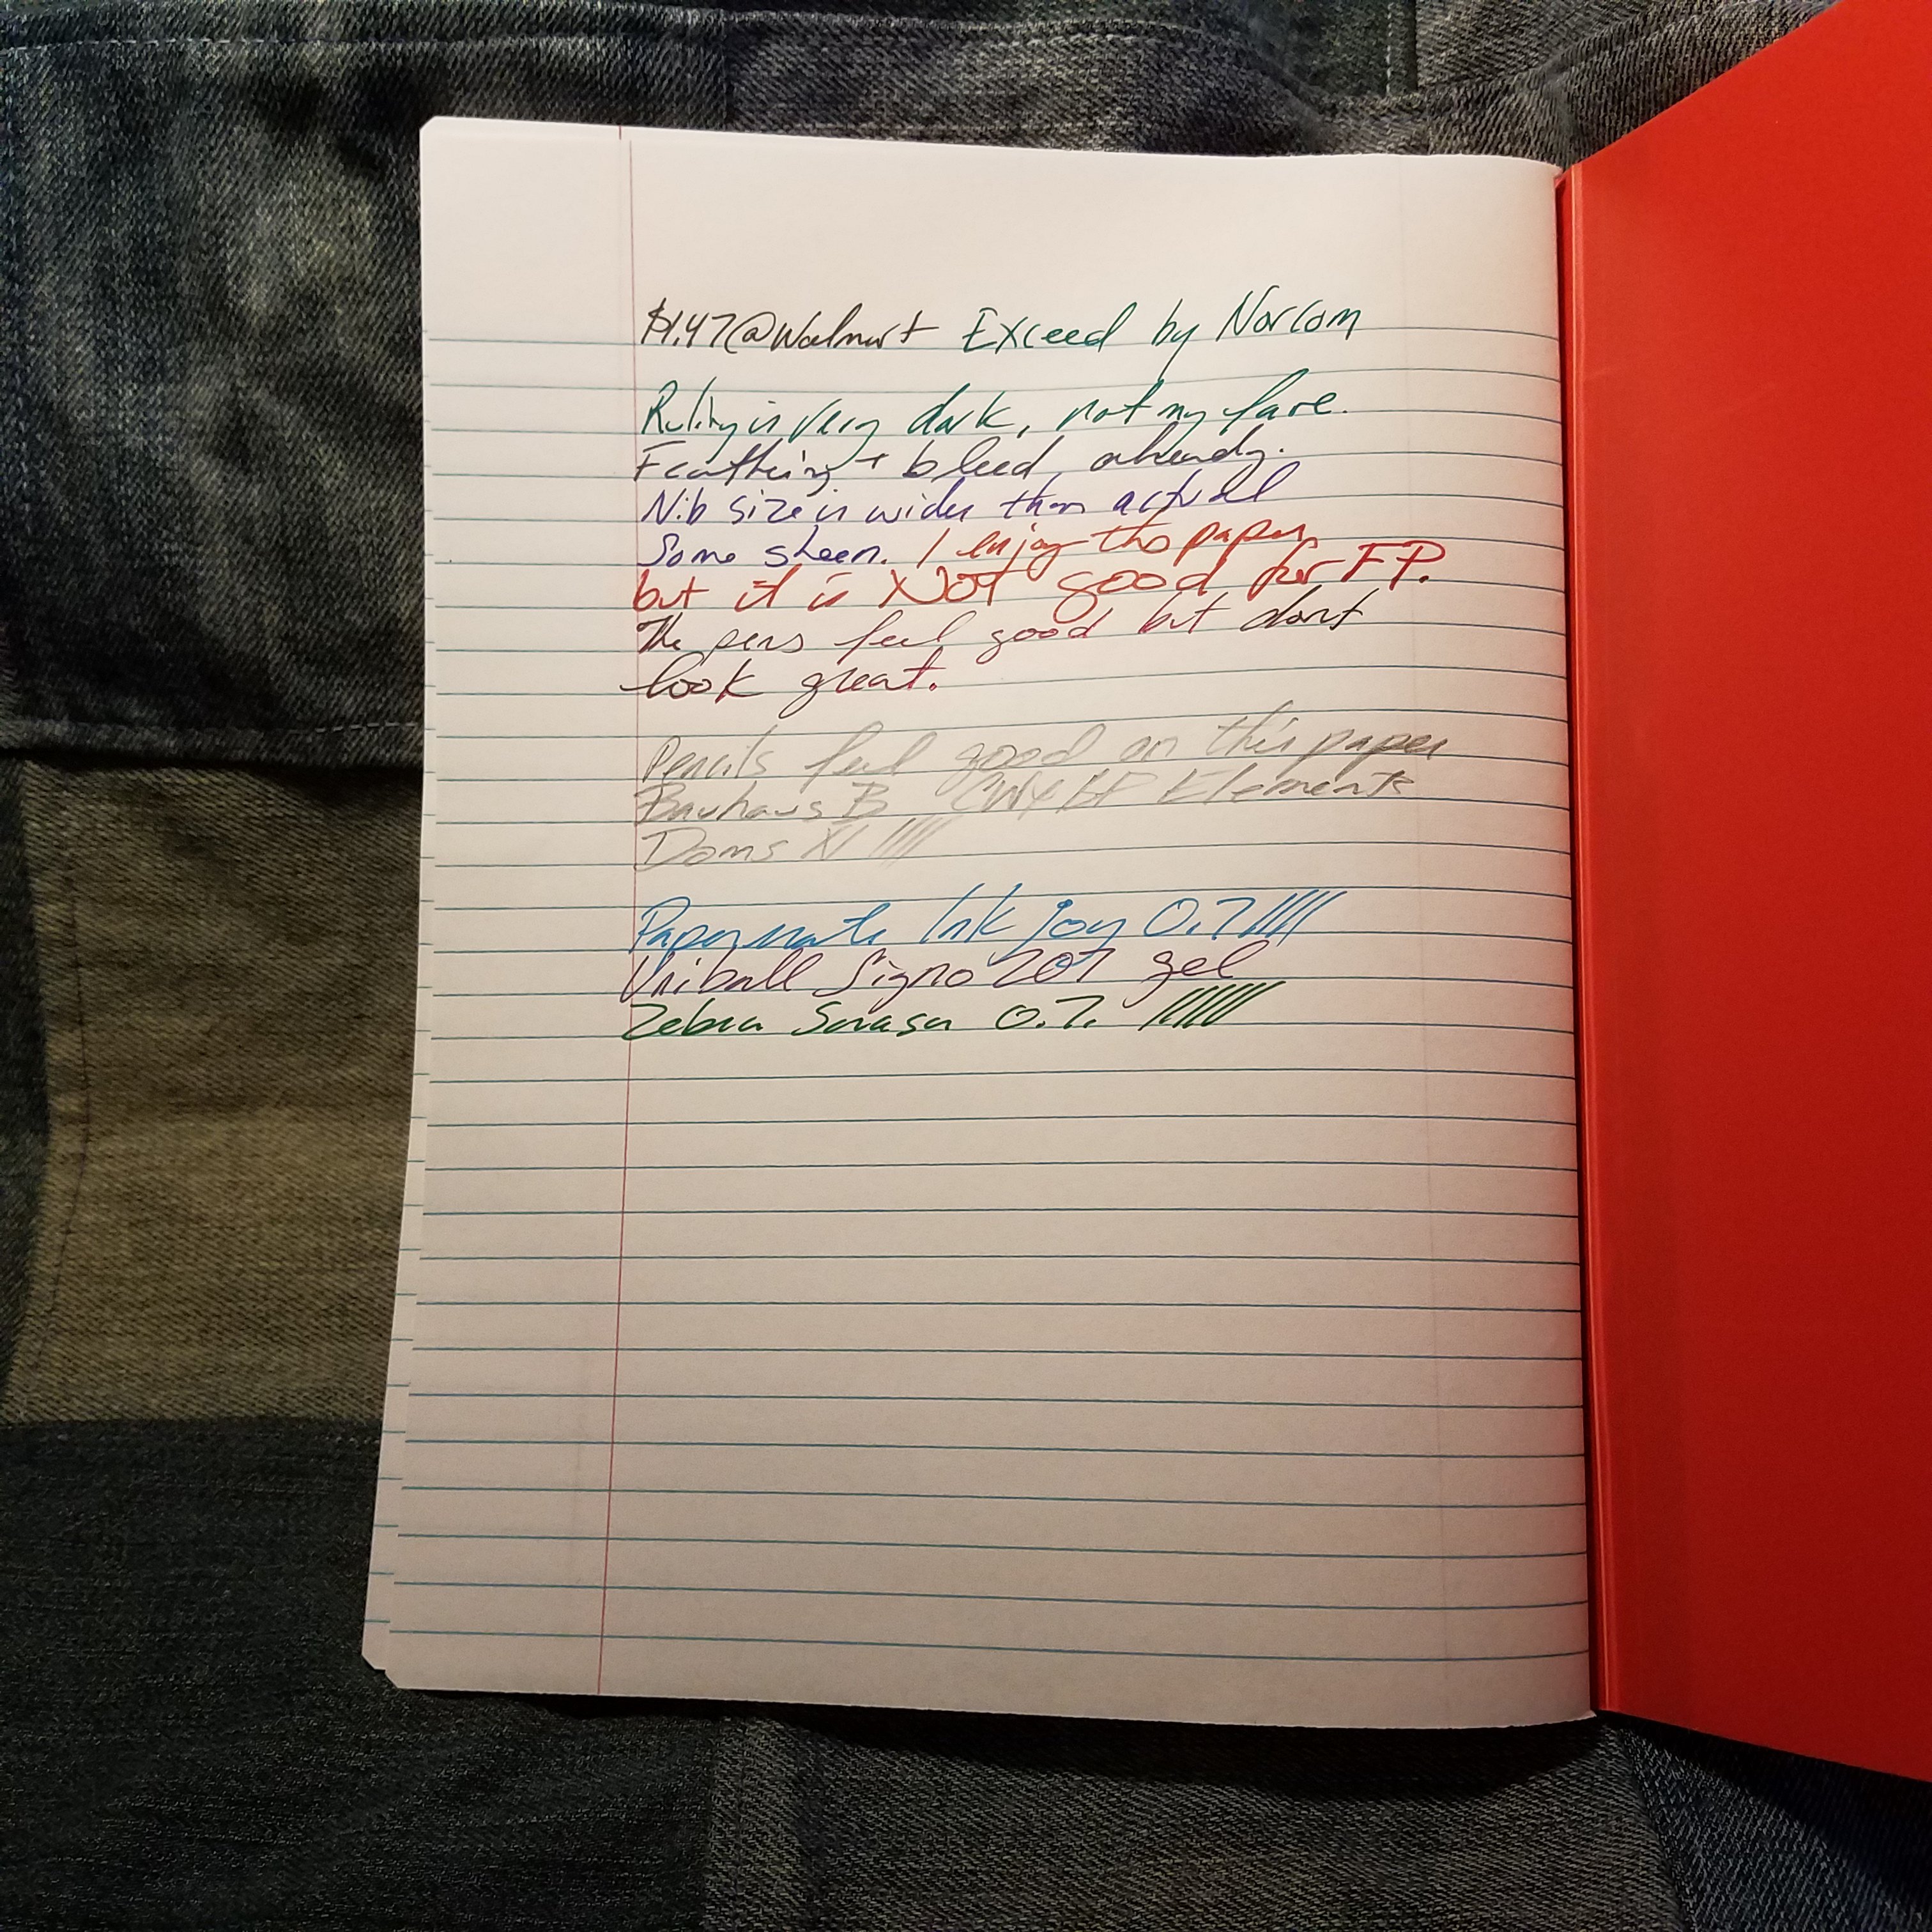 $1.47@Walmart Exceed by Norcom
Ruling is very dark, not my fave.
Feathering + bleed, already.
Nib size is wider than actual
Some sheen. I enjoy this paper,
but it is NOT good for FP.
The pens feel good but dont
look great.
Pencils feel good on this paper
Bauhaus B CWX BP Elements
Doms X1 ////
Papermate Ink Joy 0.7 /////
Uniball Signo 207 gel
Zebra Sarasa 0.7. //////